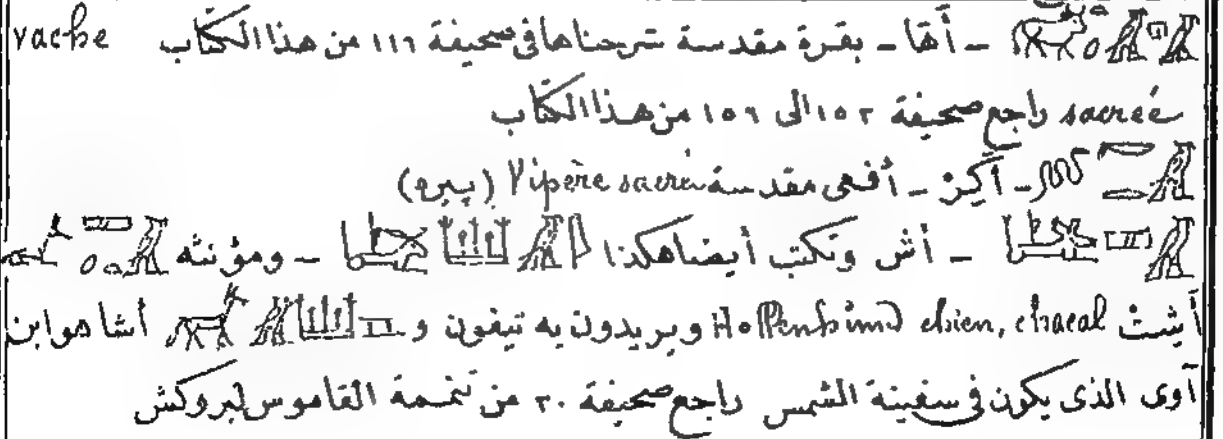 - أَهَا - بقرة مقدسة شرحناها في صحيفة ١١٦ من هذا الكتاب vache
sacrée راجع صحيفة ١٥٢ الى ١٥٦ من هذا الكتاب
- آكِرْ - أفعى مقدسة Vipère sacrée (پيره)
- أش وتكتب أيضا هكذا - ومؤنثه
أَشِتْ Höllenhund chien, chacal ويريدون به تيفون و أشا هو ابن
آوى الذى يكون فى سفينة الشمس راجع صحيفة ٢٠ من تتمة القاموس لبروكش